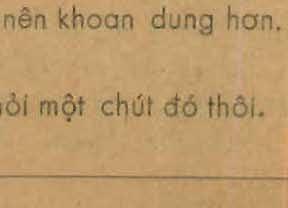 nên khoan dung hơn.
một chút đó thôi.